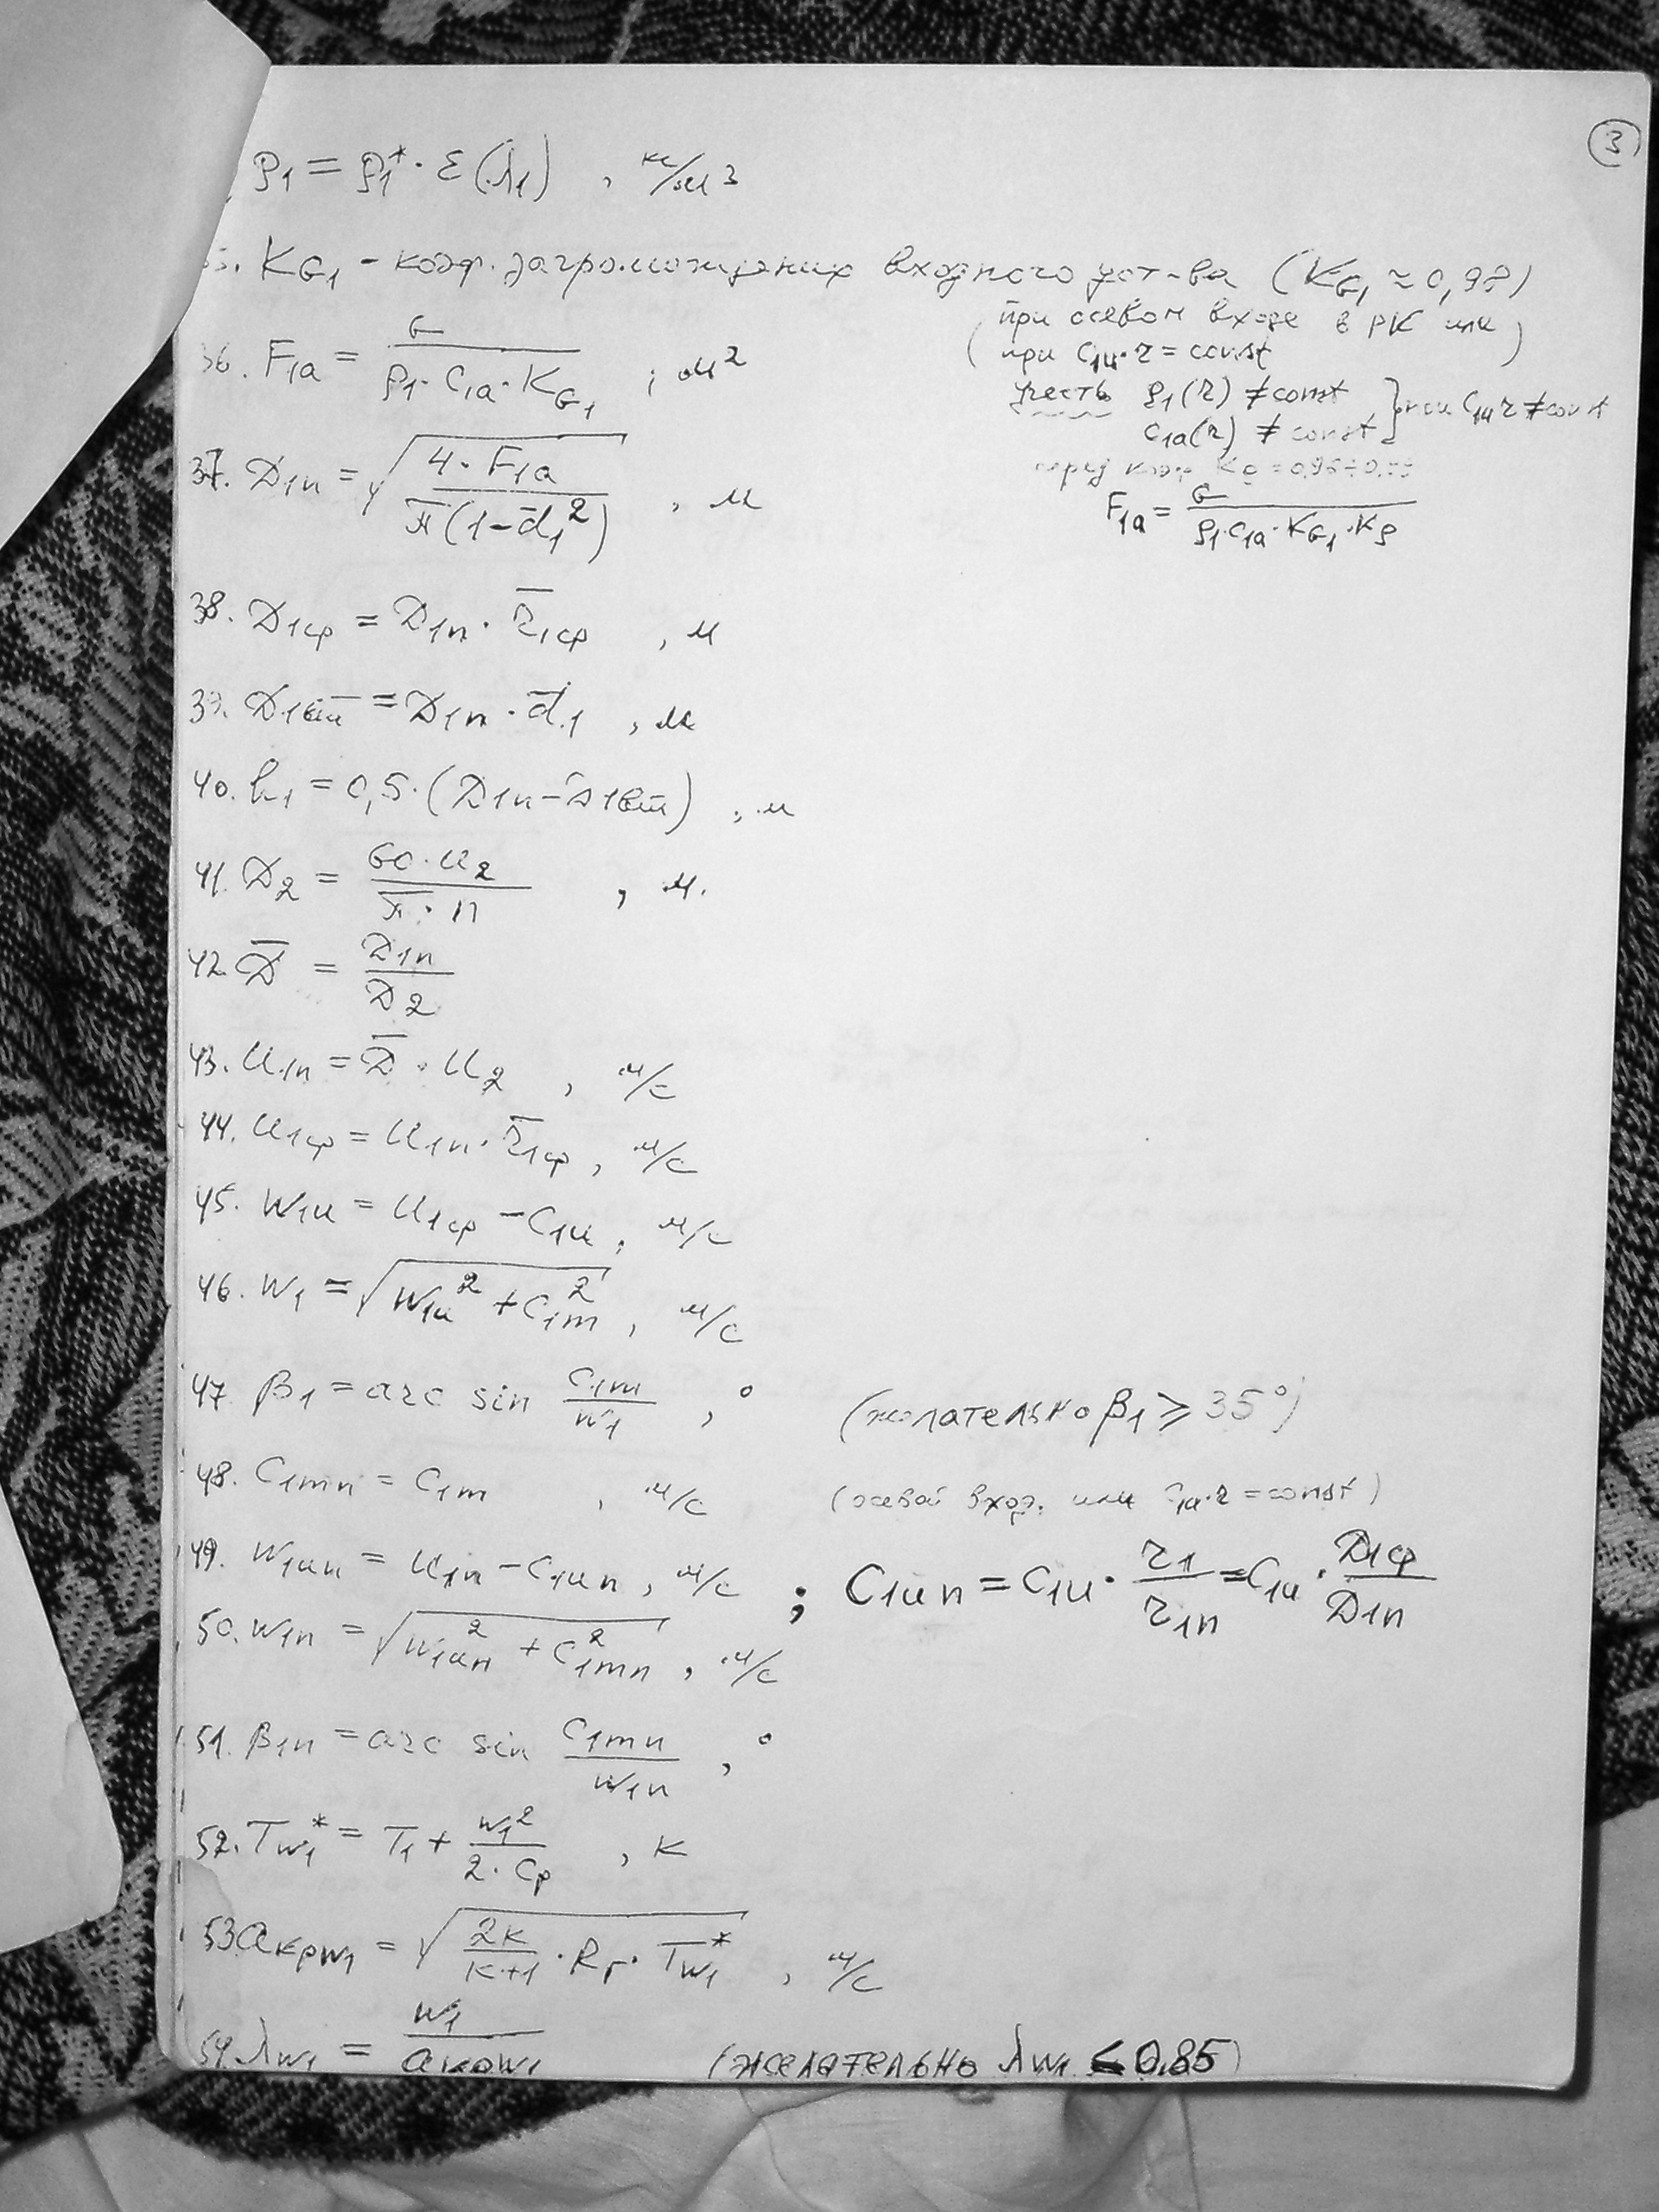 3
ρ1 = ρ1* · ε(λ1) , кг/м3
35. KG1 - коэф. загромождения входного уст-ва (KG1 ≈ 0,98)
(при осевом входе в РК или
при c1u·r = const)
36. F1a = G / (ρ1 · C1a · KG1) ; м2
учесть ρ1(r) ≠ const
c1a(r) ≠ const } при C1u r ≠ const
Kρ = 0,96÷0,
F1a = G / (ρ1·C1a·KG1·Kρ)
37. D1п = √(4·F1a / π(1-d̄1²)) , м
38. D1ср = D1п · r̄1ср , м
39. D1вт = D1п · d̄1 , м
40. h1 = 0,5·(D1п-D1вт) , м
41. D2 = 60·u2 / π·n , м.
42. D̄ = D1п / D2
43. U1п = D̄ · U2 , м/с
44. U1ср = U1п · r̄1ср , м/с
45. W1u = U1ср - C1u , м/с
46. W1 = √(W1u² + C1m²) , м/с
47. β1 = arc sin C1m / W1 , ° (желательно β1 ⩾ 35°)
48. C1mп = C1m , м/с (осевой вход. или C1u·r = const)
49. W1uп = U1п - C1uп , м/с ; C1uп = C1u · r1 / r1п = C1u · D1ср / D1п
50. W1п = √(W1uп² + C1mп²) , м/с
51. β1п = arc sin C1mп / W1п , °
52. Tw1* = T1 + W1² / 2·Cp , К
53. aкрw1 = √(2к / к+1 · Rг · Tw1*) , м/с
54. λw1 = W1 / aкрw1 (желательно λw1 ≤ 0,85)